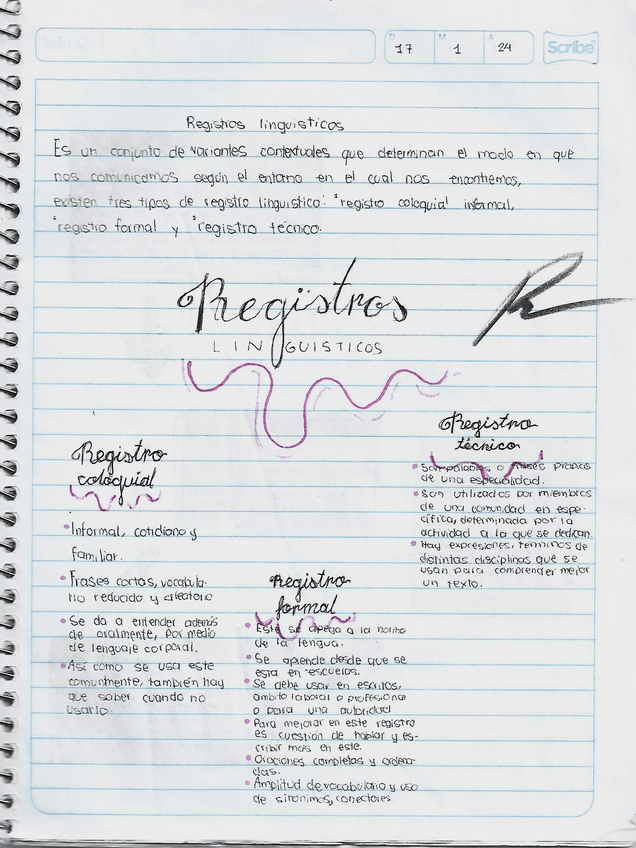 D 17 M 1 A 24 Scribe
Registros linguisticos
Es un conjunto de variantes contextuales que determinan el modo en que
nos comunicamos según el entorno en el cual nos encontremos,
existen tres tipos de registro linguistico: "registro coloquial informal,
"registro formal y "registro técnico.
Registros
LINGUISTICOS
Registro
coloquial
• Informal, cotidiano y
familiar.
• Frases cortas, vocabula-
rio reducido y aleatorio
• Se da a entender además
de oralmente, por medio
de lenguaje corporal.
• Así como se usa este
comunmente, también hay
que saber cuando no
usarlo
Registro
formal
• Este se apega a la norma
de la lengua.
• Se aprende desde que se
esta en escuelas.
• Se debe usar en escritos,
ambito laboral o profesional
o para una autoridad
• Para mejorar en este registro
es cuestión de hablar y es-
cribir más en este.
• Oraciones completas y ordena-
das.
• Amplitud de vocabulario y uso
de sinonimos, conectores.
Registro
técnico
• Son palabras o frases propias
de una especialidad.
• Son utilizados por miembros
de una comunidad en espe-
cífica, determinada por la
actividad a la que se dedican.
• Hay expresiones, terminos de
distintas disciplinas que se
usan para comprender mejor
un texto.